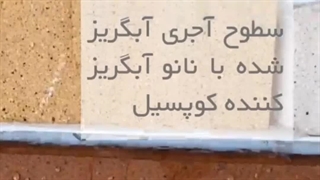 سطوح آجری آبگریز
شده با نانو آبگریز
کننده کوپسیل